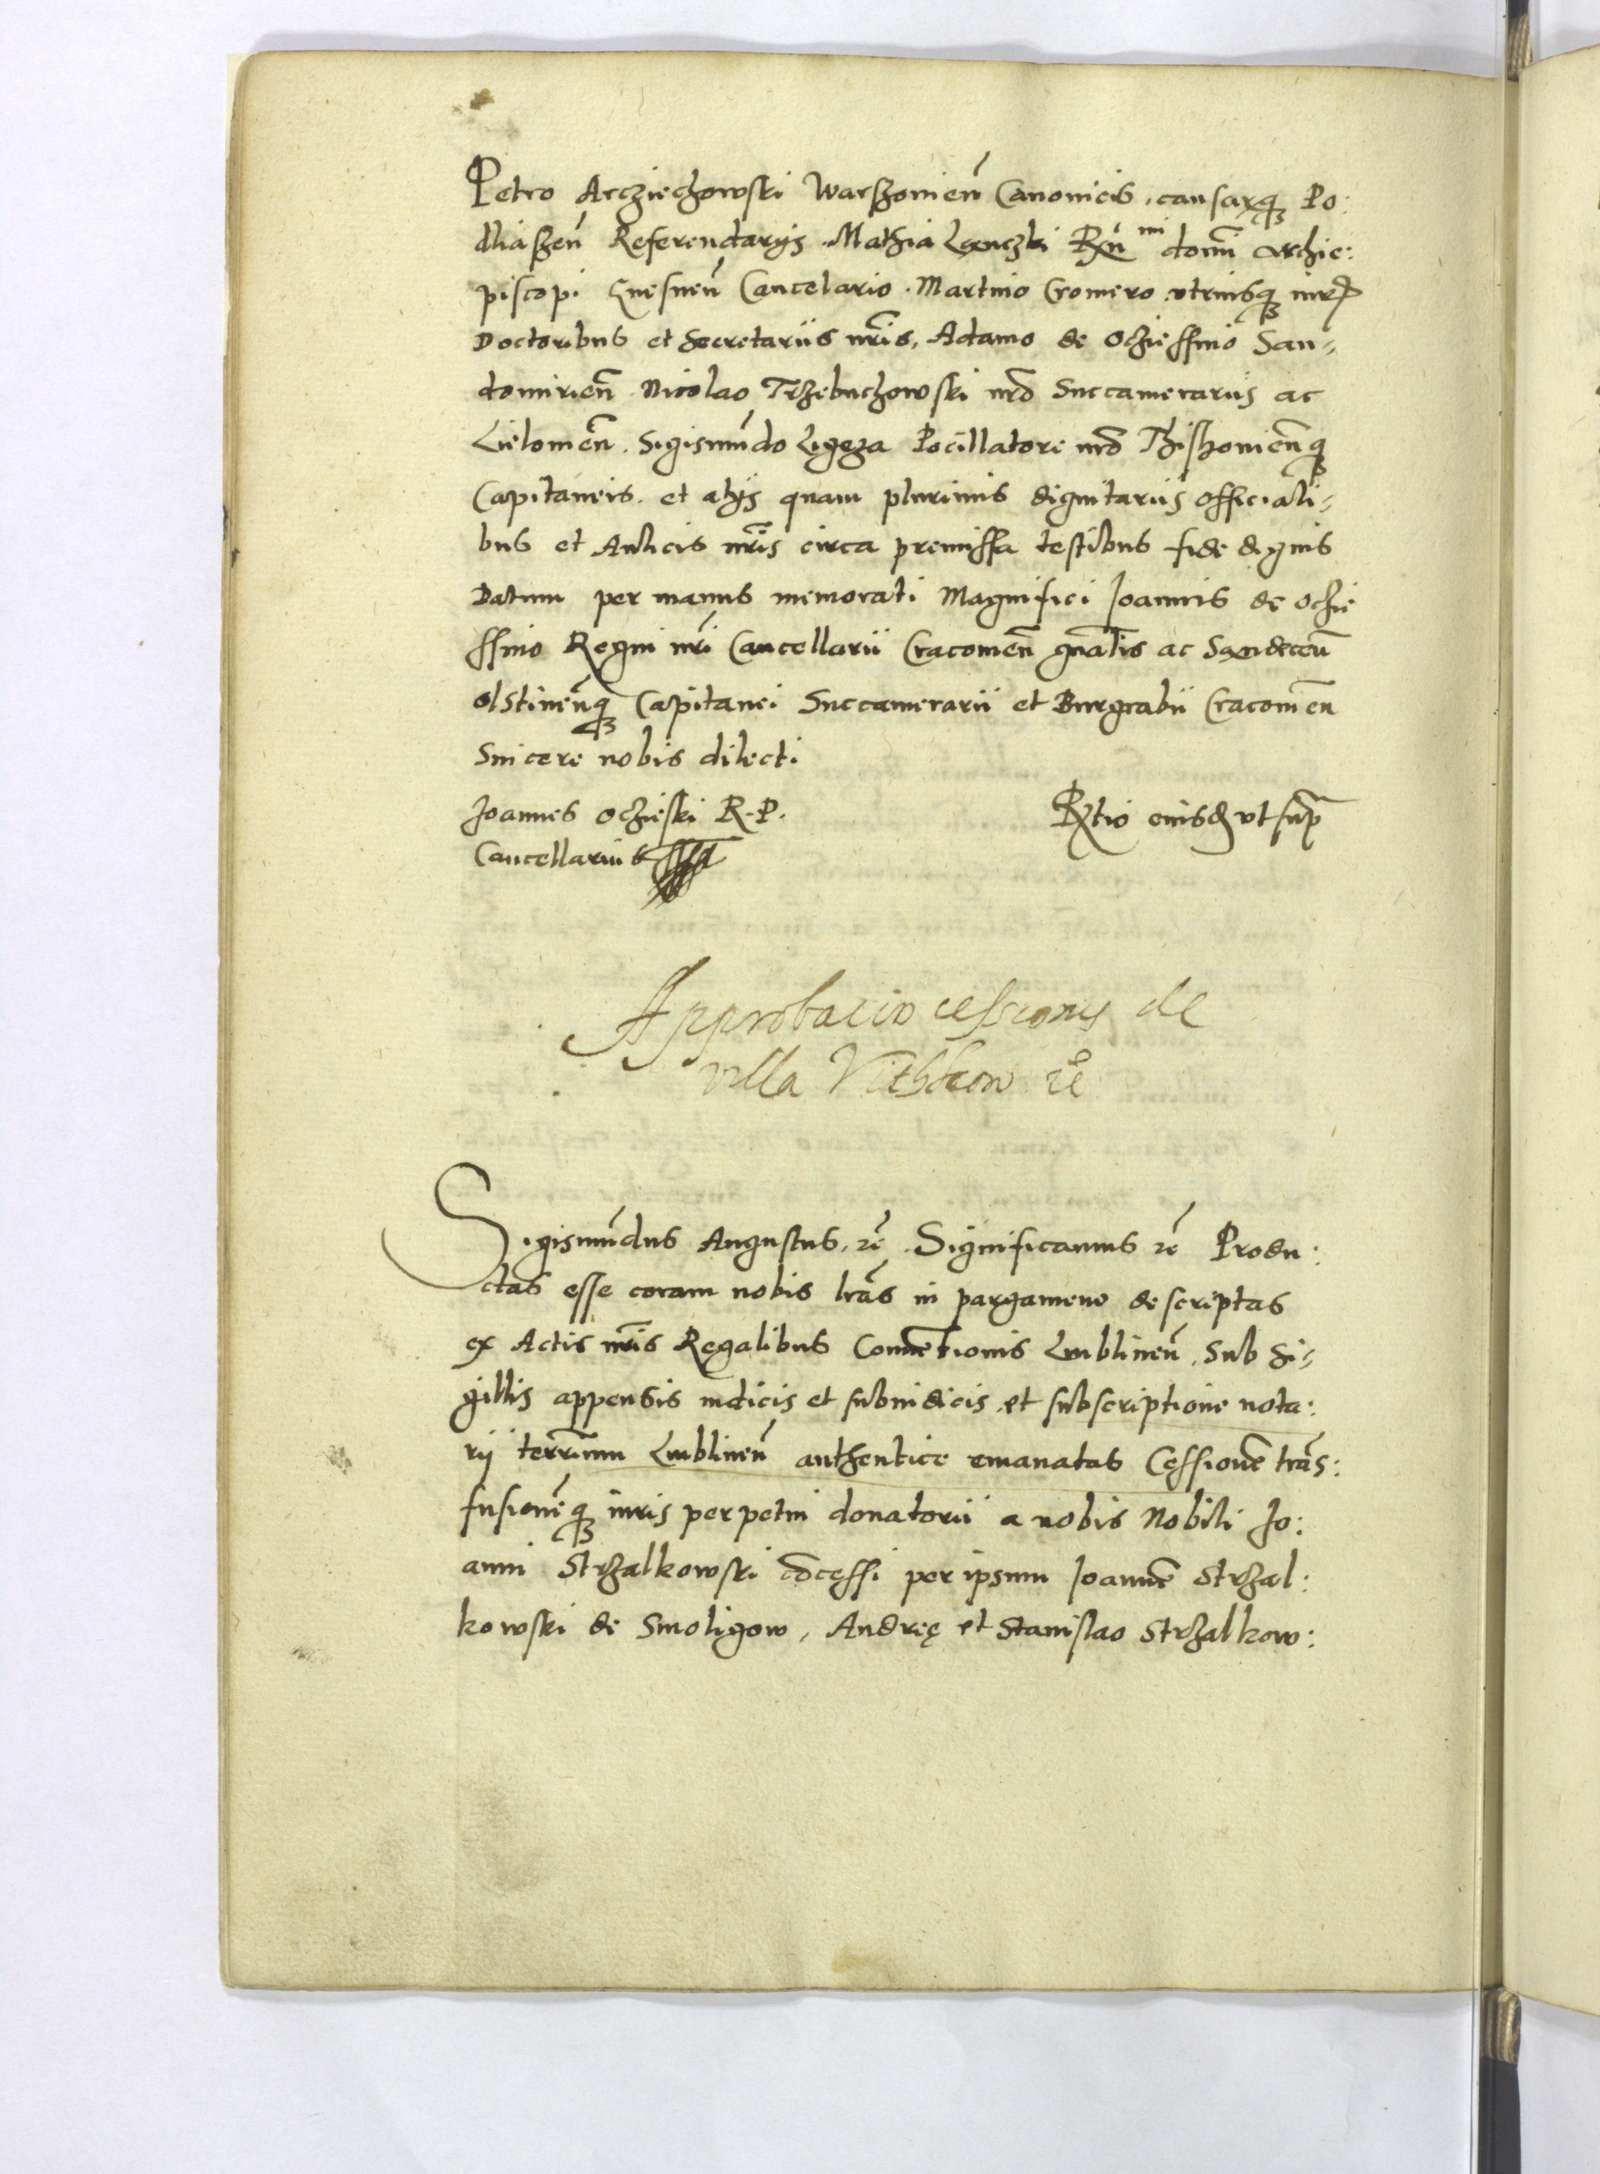 Petro Arcziechowski Warszouien̄ Canonicis, causarq3 Po:
dliaszen̄ Referendarijs. Mathia Lęnczki Rn̄ mi domi Archie:
piscopi Gnesnen̄ Cancelario. Martino Cromero vtriusq3 iuris
Doctoribus et Secretariis nr̄is, Adamo de Ochieſſino San=
domirien̄ Nicolao Trzebuchowski nr̄o Succamerariis ac
Lielouien̄. Sigismūdo Ligęza Pocillatore nr̄o Zhishouien̄q3
Capitaneis. et alijs quam plurimis dignitariis officiali=
bus et Aulicis nr̄is circa premiſſa testibus fide dignis
Datum per manus memorati Magnifici Joannis de Ochie
ſſino Regni nr̄i Cancellarii Cracouien̄ gn̄alis ac Sandecen̄
Olstinen̄q3 Capitanei Succamerarii et Burgrabii Cracouien̄
Sincere nobis dilecti
Joannes Ochieski R. P.
Cancellarius
Rtio eiusd vt sup̄
Approbacio cessionis de
villa Vithkow rc̄
Sigismūdus Augustus, rc̄. Significamus rc̄ Produ:
ctas esse coram nobis lrās in pargameno descriptas
ex Actis nr̄is Regalibus Conuētionis Lublinen̄. Sub si=
gillis appensis iudicis et subiudicis, et subscriptione nota:
rij terr̄arum Lublinen̄ authentice emanatas Ceſſionē trās:
fusionēq3 iuris perpetui donatorii a nobis Nobili Jo:
anni Strzalkowski cōceſſi per ipsum Joannē Strzal:
kowski de Smoligow, Andreę et Stanislao Strzalkow: